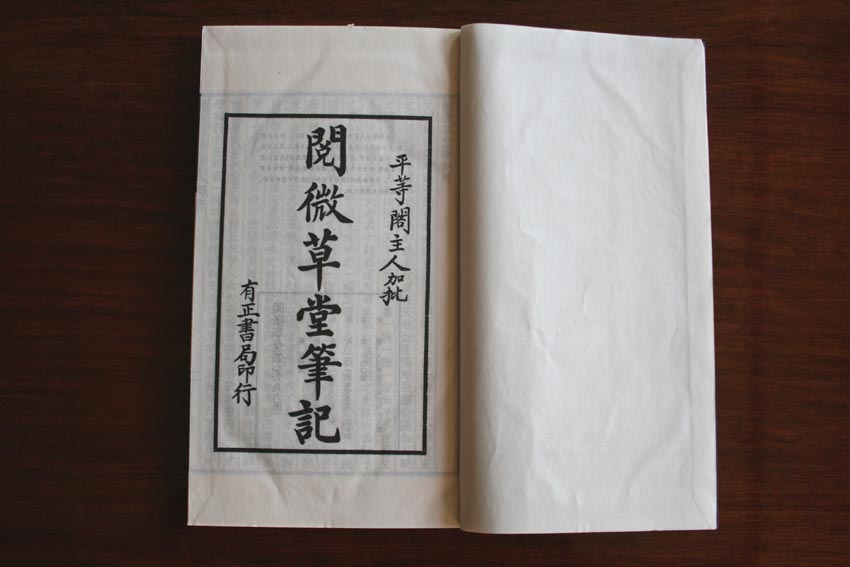 平等閣主人加批
閱微草堂筆記
有正書局印行